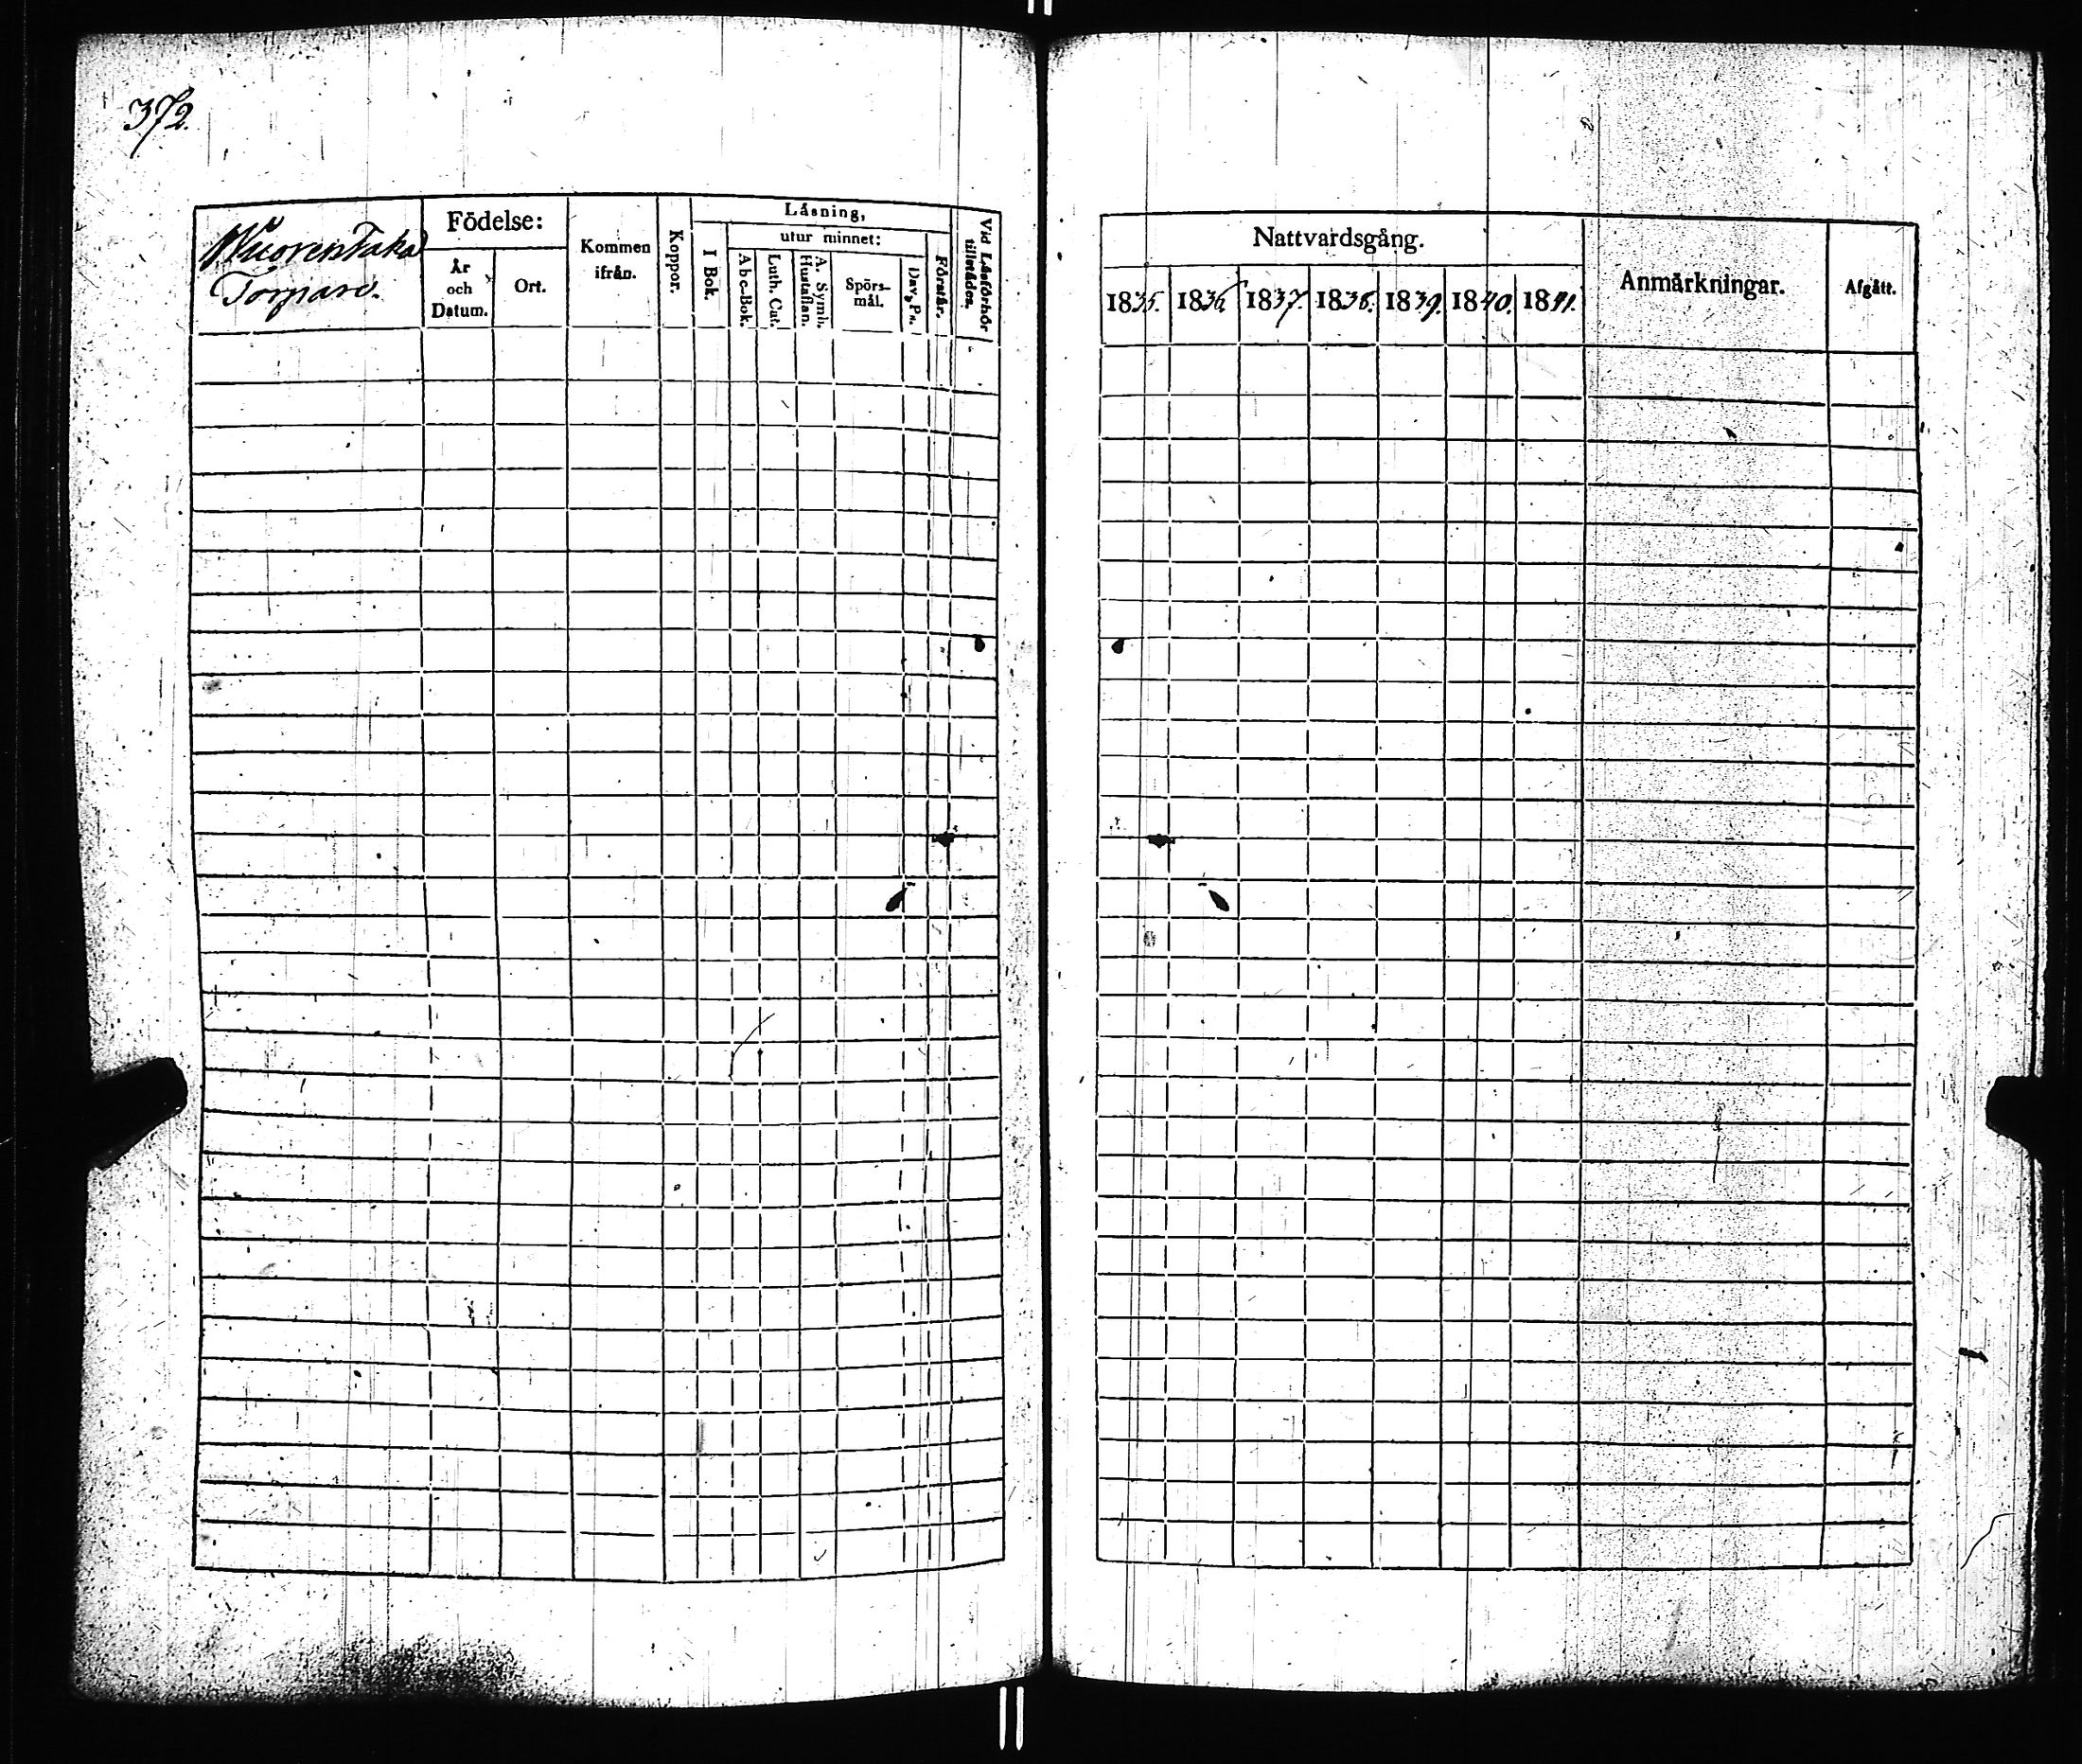 372.
WuorenTaka
Torpare.
Födelse:
År
och
Datum.
Ort.
Kommen
ifrån.
Koppor.
Låsning,
I Bok.
utur minnet:
Abc-Bok.
Luth. Cat.
A. Symb.
Hustaflan.
Spörs-
mål.
Dav. Ps.
Förstår.
Vid Läsförhör
tillstådes.
Nattvardsgång.
1835.
1836.
1837.
1838.
1839.
1840.
1841.
Anmärkningar.
Afgått.